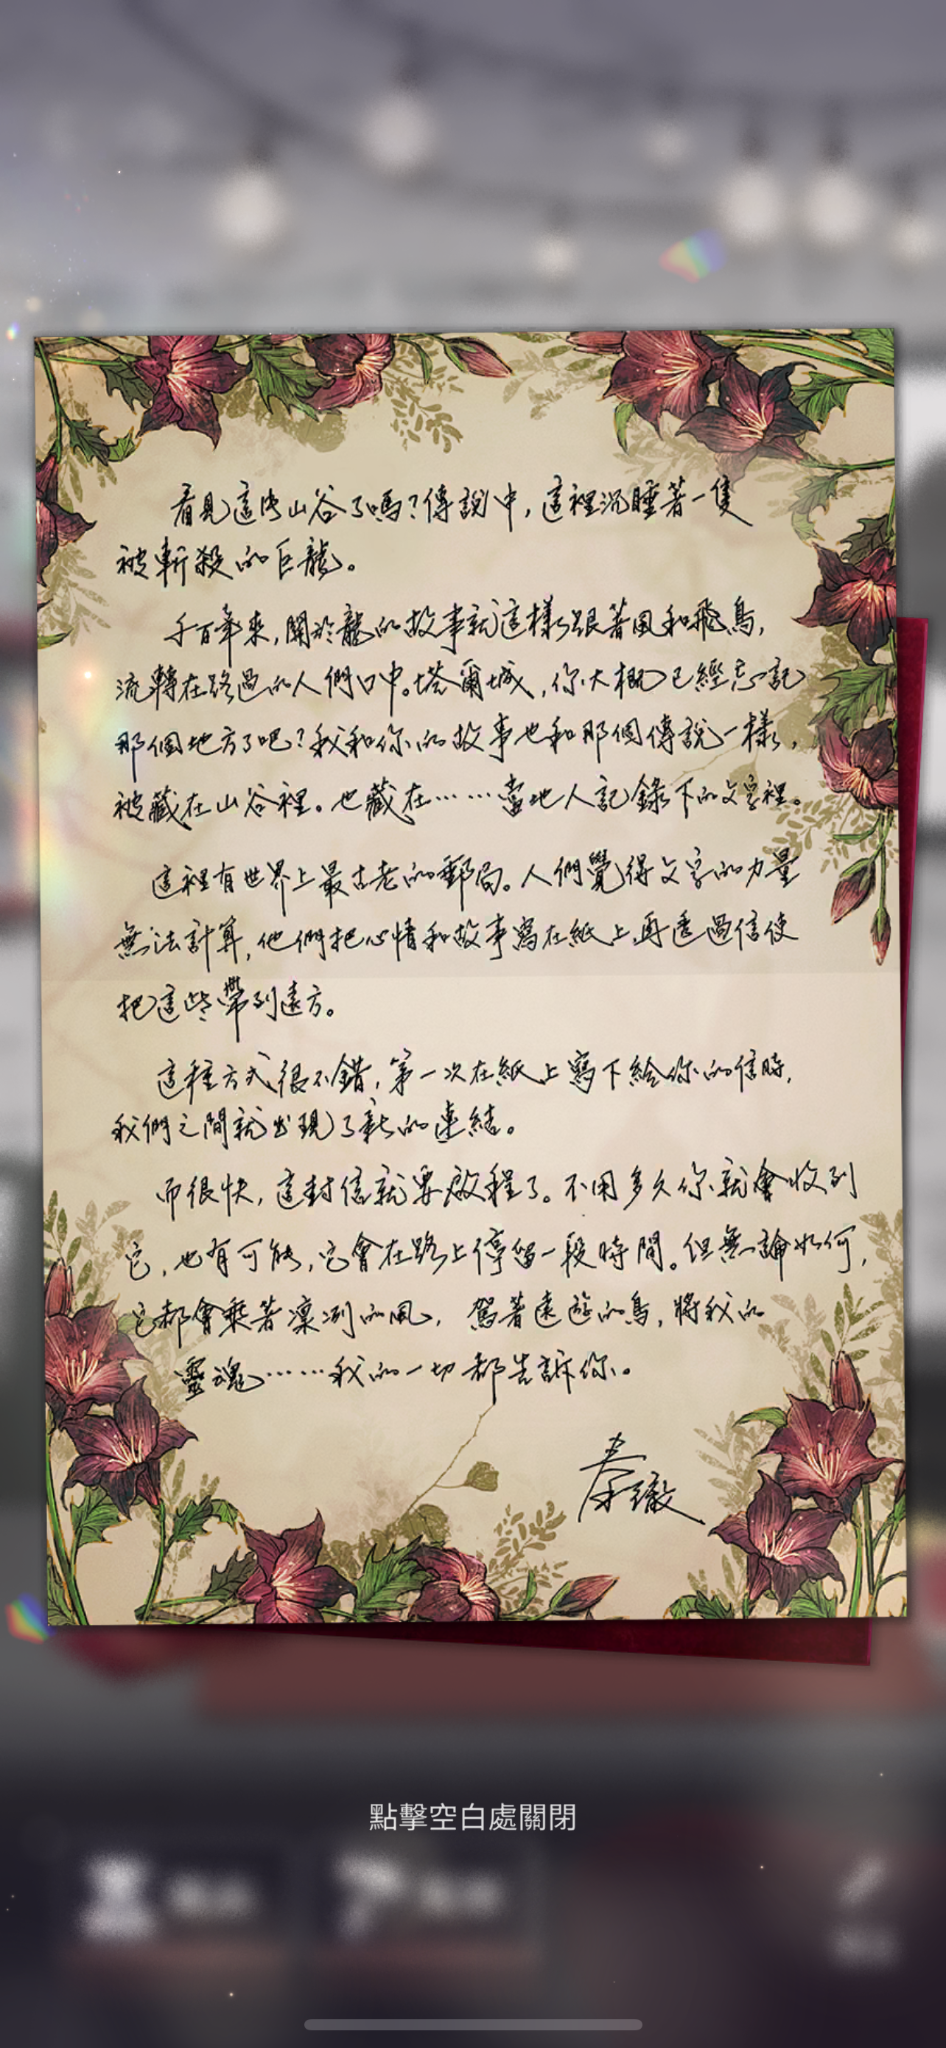 看見這片山谷了嗎？傳說中，這裡沉睡著一隻
被斬殺的巨龍。
千百年來，關於龍的故事就這樣跟著風和飛鳥，
流轉在路過的人們口中。塔爾城，你大概已經忘記
那個地方了吧？我和你的故事也和那個傳說一樣，
被藏在山谷裡。也藏在……當地人記錄下的文字裡。
這裡有世界上最古老的郵局。人們覺得文字的力量
無法計算，他們把心情和故事寫在紙上，再透過信使
把這些帶到遠方。
這種方式很不錯，第一次在紙上寫下給你的信時，
我們之間就出現了新的連結。
而很快，這封信就要啟程了。不用多久你就會收到
它，也有可能，它會在路上停留一段時間。但無論如何，
它都會乘著凜冽的風，駕著遠遊的鳥，將我的
靈魂……我的一切都告訴你。
秦徹
點擊空白處關閉